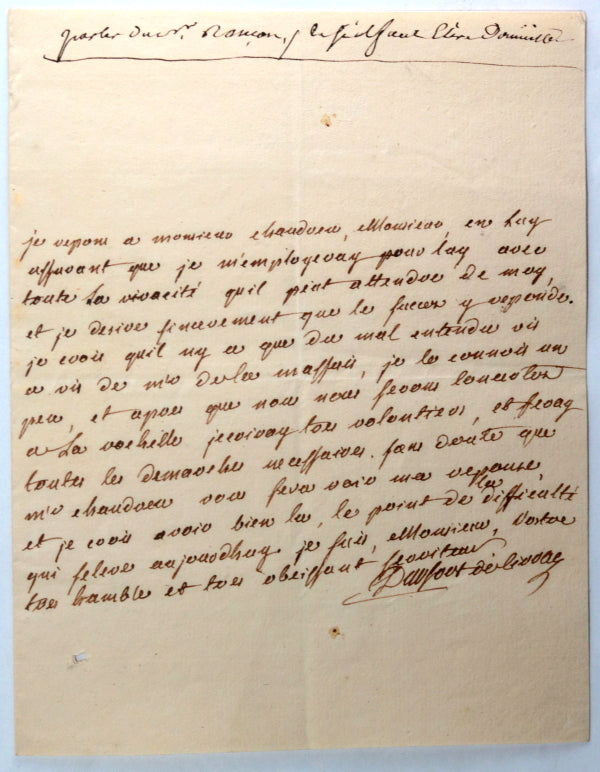 parler du Mr. Rançon, 
je repons a monsieur chaudoen, Monsieur, en Luy
assurant que je m'employeray pour luy avec
toute La vivacité qu'il peut attendre de moy,
et je desire sincerement que le succez y reponde.
je crois qu'il ny a que du mal entendu vis
a vis de mr de la massais, je le connois un
peu, et apres que nous nous serons
a La rochelle jecriray tres volontiers, et feray
toutes les demarches necessaires. sans doute que
mr chaudoen vous fera voir ma reponse
et je crois avoir bien lu, le point de la difficulté
qui seleve aujourdhuy. je suis, Monsieur, Vostre
tres humble et tres obeissant serviteur